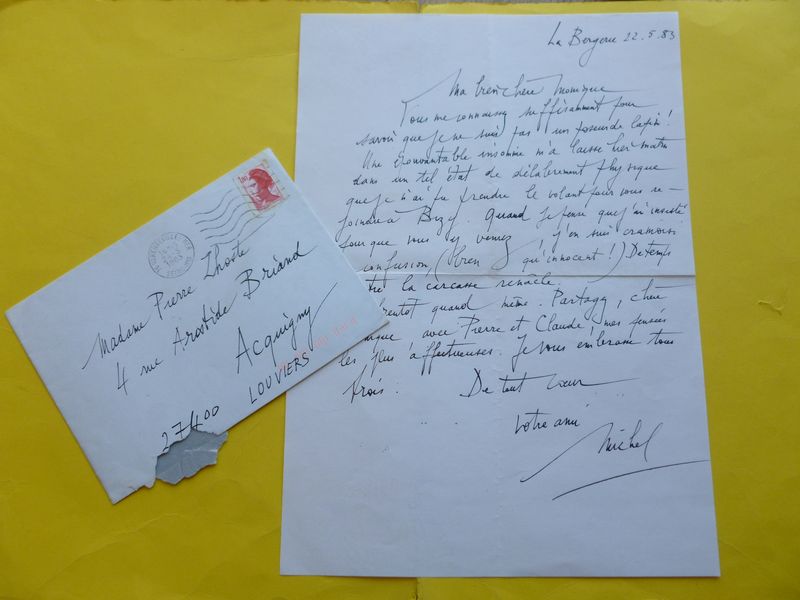 La Bergerie 22.5.83
Ma bien chère Monique
Vous me connaissez suffisamment pour
savoir que je ne suis pas un poseur de lapin !
Une épouvantable insomnie m'a laissé hier matin
dans un tel état de délabrement physique
que je n'ai pu prendre le volant pour vous re-
joindre à Bizy. Quand je pense que j'ai insisté
pour que vous y veniez j'en suis cramoisi
confusion, (bien qu'innocent !) De temps
la carcasse renâcle.
bientôt quand même. Partagez, chère
avec Pierre et Claude, mes pensées
les plus affectueuses. Je vous embrasse tous
trois. De tout coeur
votre ami
Michel
Madame Pierre Lhoste
4 rue Aristide Briand
Acquigny
27400 LOUVIERS